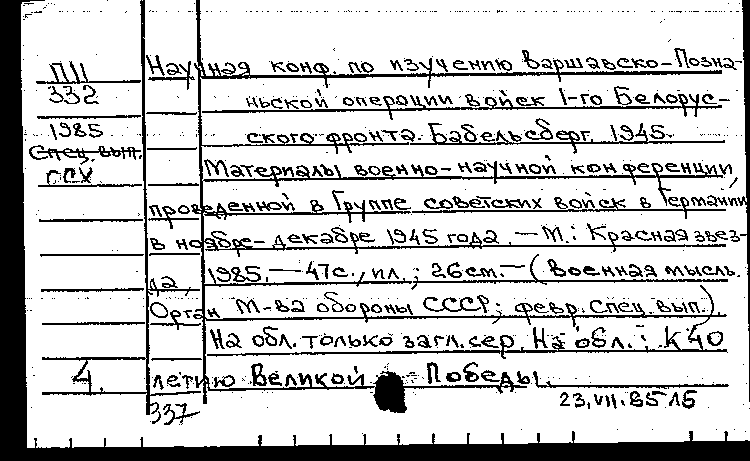 П11
332
1985
Спец. вып.
ГСХ
Научная конф. по изучению Варшавско-Позна-
ньской операции войск 1-го Белорус-
ского фронта. Бабельсберг. 1945.
Материалы военно-научной конференции,
проведенной в Группе советских войск в Германии
в ноябре-декабре 1945 года. — М.: Красная звез-
да, 1985. — 47с., ил.; 26см. — (Военная мысль.
Орган М-ва обороны СССР; февр. спец. вып.)
На обл. только загл. сер. На обл.: К 40
летию Великой Победы.
4.
337
23.VII.85